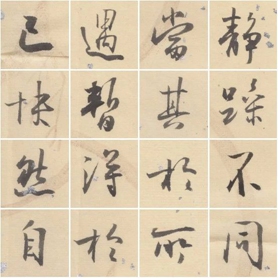 静躁不同
當其於所
遇暫得於
己快然自